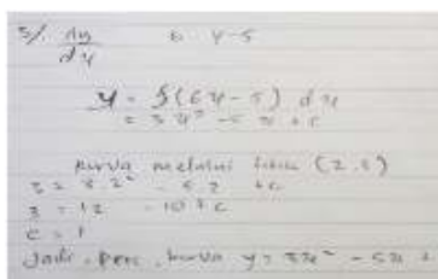 5/. dy 6x-5
dx
y = ∫(6x-5) dx
= 3x² - 5x + c
kurva melalui titik (2,3)
3 = 3.2² - 5.2 + c
3 = 12 - 10 + c
c = 1
Jadi, pers. kurva y = 3x² - 5x +